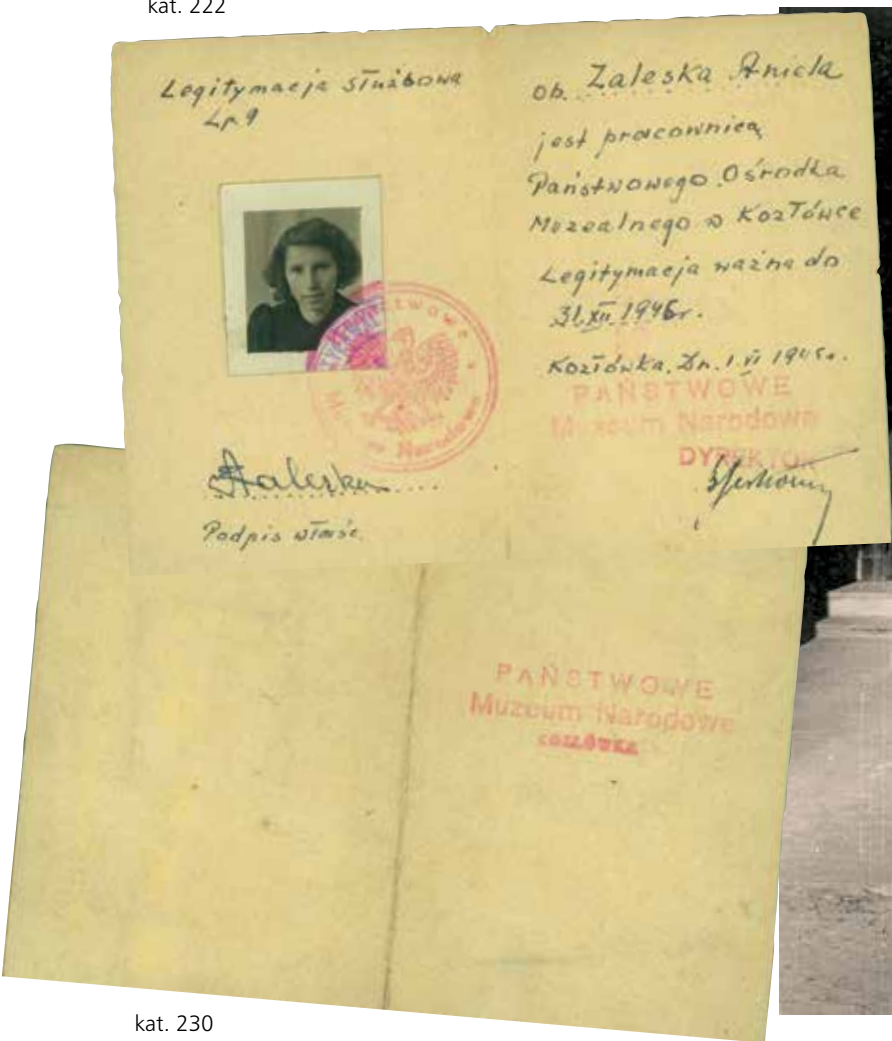 kat. 222
Legitymacja służbowa
Lp. 9
ob. Zaleska Aniela
jest pracownicą
Państwowego Ośrodka
Muzealnego w Kozłówce
Legitymacja ważna do
31.XII 1946r.
Kozłówka, Dn. 1.VI 1946r.
PAŃSTWOWE
Muzeum Narodowe
DYREKTOR
AZaleska
Podpis właśc.
PAŃSTWOWE
Muzeum Narodowe
KOZŁÓWKA
kat. 230